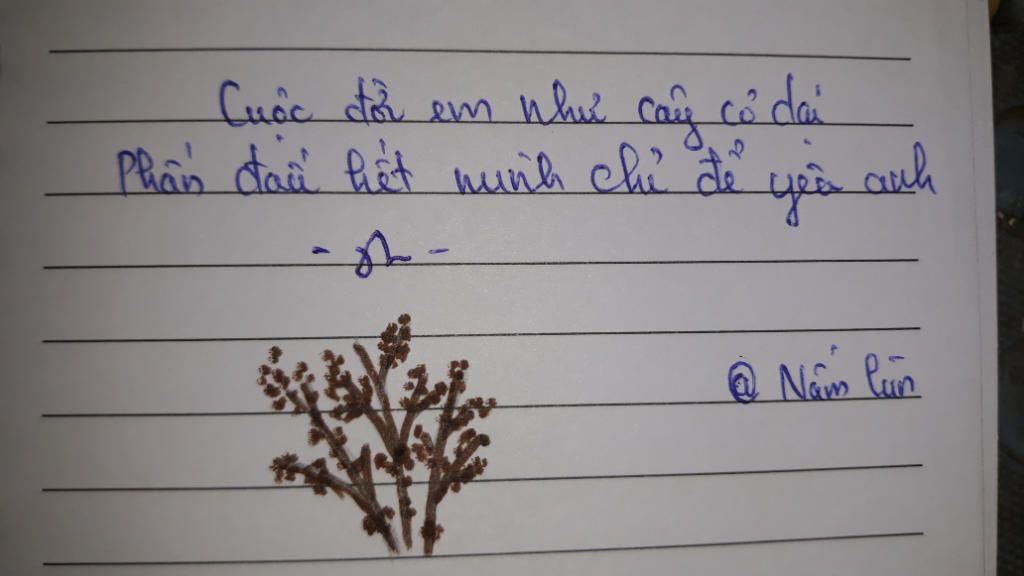 Cuộc đời em như cây cỏ dại
Phấn đấu hết mình chỉ để yêu anh
@ Nấm lùn